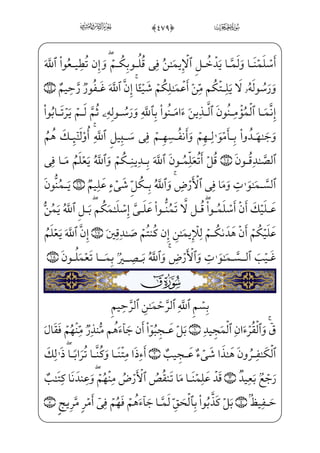 ﴿٤٧٩﴾
أَسْلَمْنَا وَلَمَّا يَدْخُلِ ٱلْإِيمَٰنُ فِى قُلُوبِكُمْ ۖ وَإِن تُطِيعُوا۟ ٱللَّهَ
وَرَسُولَهُۥ لَا يَلِتْكُم مِّنْ أَعْمَٰلِكُمْ شَيْـًٔا ۚ إِنَّ ٱللَّهَ غَفُورٌ رَّحِيمٌ ۝١٤
إِنَّمَا ٱلْمُؤْمِنُونَ ٱلَّذِينَ ءَامَنُوا۟ بِٱللَّهِ وَرَسُولِهِۦ ثُمَّ لَمْ يَرْتَابُوا۟
وَجَٰهَدُوا۟ بِأَمْوَٰلِهِمْ وَأَنفُسِهِمْ فِى سَبِيلِ ٱللَّهِ ۚ أُو۟لَٰٓئِكَ هُمُ
ٱلصَّٰدِقُونَ ۝١٥ قُلْ أَتُعَلِّمُونَ ٱللَّهَ بِدِينِكُمْ وَٱللَّهُ يَعْلَمُ مَا فِى
ٱلسَّمَٰوَٰتِ وَمَا فِى ٱلْأَرْضِ ۚ وَٱللَّهُ بِكُلِّ شَىْءٍ عَلِيمٌ ۝١٦ يَمُنُّونَ
عَلَيْكَ أَنْ أَسْلَمُوا۟ ۖ قُل لَّا تَمُنُّوا۟ عَلَىَّ إِسْلَٰمَكُم ۖ بَلِ ٱللَّهُ يَمُنُّ
عَلَيْكُمْ أَنْ هَدَىٰكُمْ لِلْإِيمَٰنِ إِن كُنتُمْ صَٰدِقِينَ ۝١٧ إِنَّ ٱللَّهَ يَعْلَمُ
غَيْبَ ٱلسَّمَٰوَٰتِ وَٱلْأَرْضِ ۚ وَٱللَّهُ بَصِيرٌۢ بِمَا تَعْمَلُونَ ۝١٨
سُورَةُ ق
بِسْمِ ٱللَّهِ ٱلرَّحْمَٰنِ ٱلرَّحِيمِ
قٓ ۚ وَٱلْقُرْءَانِ ٱلْمَجِيدِ ۝١ بَلْ عَجِبُوٓا۟ أَن جَآءَهُم مُّنذِرٌ مِّنْهُمْ فَقَالَ
ٱلْكَٰفِرُونَ هَٰذَا شَىْءٌ عَجِيبٌ ۝٢ أَءِذَا مِتْنَا وَكُنَّا تُرَابًا ۖ ذَٰلِكَ
رَجْعٌۢ بَعِيدٌ ۝٣ قَدْ عَلِمْنَا مَا تَنقُصُ ٱلْأَرْضُ مِنْهُمْ ۖ وَعِندَنَا كِتَٰبٌ
حَفِيظٌۢ ۝٤ بَلْ كَذَّبُوا۟ بِٱلْحَقِّ لَمَّا جَآءَهُمْ فَهُمْ فِىٓ أَمْرٍ مَّرِيجٍ ۝٥